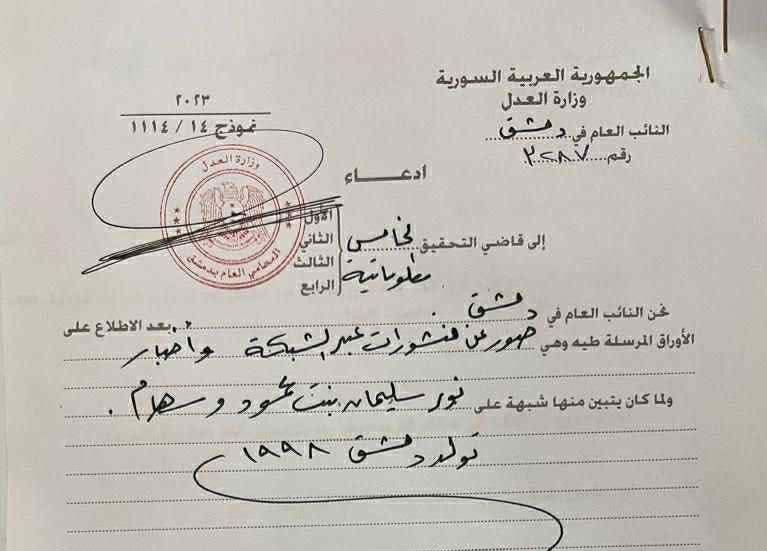 الجمهورية العربية السورية
وزارة العدل
النائب العام في دمشق
رقم ٣٢٨٧
٢٠٢٣
نموذج ١٤ / ١١١٤
وزارة العدل
المحامي العام بدمشق
ادعـــاء
إلى قاضي التحقيق الخامس
معلوماتية
الأول
الثاني
الثالث
الرابع
نحن النائب العام في دمشق بعد الاطلاع على
الأوراق المرسلة طيه وهي صور عن منشورات عبر الشبكة واخبار
ولما كان يتبين منها شبهة على نور سليمان بنت محمود وسهام .
تولد دمشق ١٩٩٨